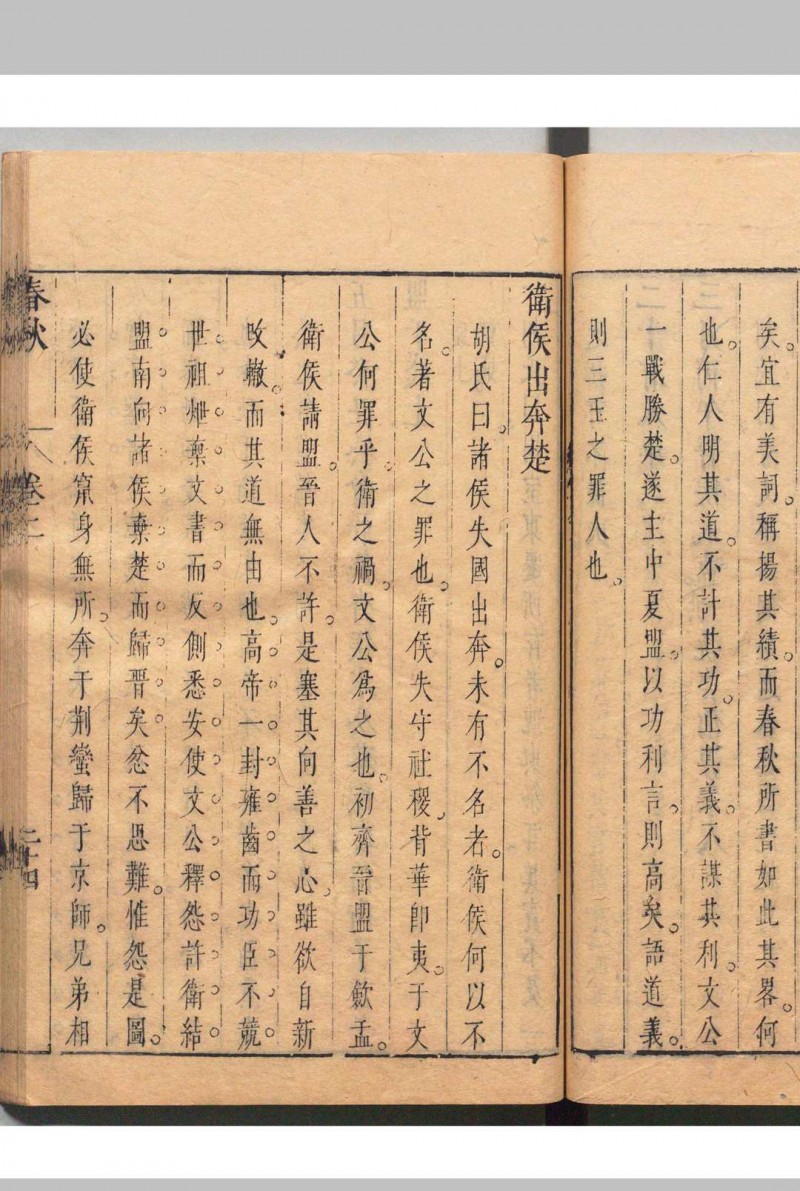 矣。宜有美詞。稱揚其績。而春秋所書如此其畧。何
也。仁人明其道。不計其功。正其義。不謀其利。文公
一戰勝楚。遂主中夏盟。以功利言。則高矣。語道義。
則三王之罪人也。
衛侯出奔楚
胡氏曰。諸侯失國出奔。未有不名者。衛侯何以不
名。著文公之罪也。衛侯失守社稷。背華即夷。于文
公何罪乎。衛之禍。文公爲之也。初齊晉盟于歛盂。
衛侯請盟。晉人不許。是塞其向善之心。雖欲自新
改轍。而其道無由也。高帝一封雍齒而功臣不競
世祖燔棄文書而反側悉安使文公釋怨許衛結
盟南向諸侯棄楚而歸晉矣忿不思難。惟怨是圖。
必使衛侯竄身無所。奔于荆蠻歸于京師。兄弟相
春秋 卷二 二十四